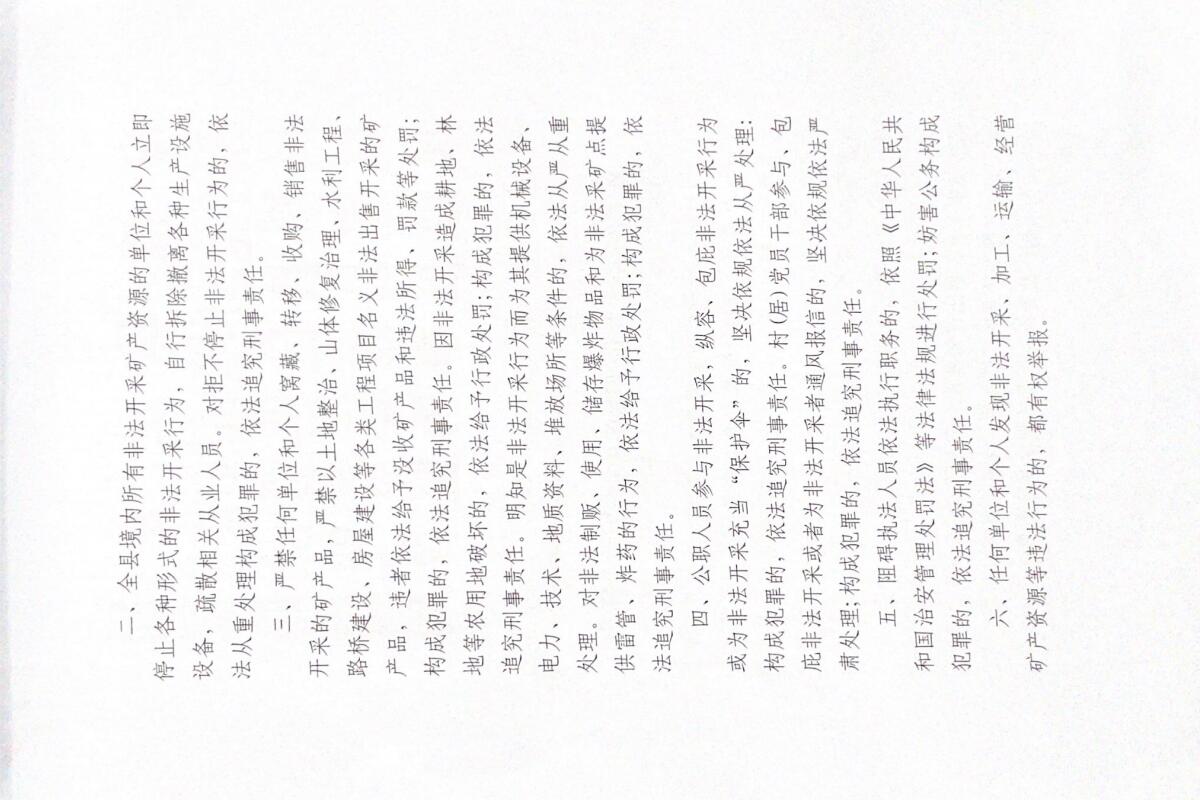 二、全县境内所有非法开采矿产资源的单位和个人立即
停止各种形式的非法开采行为，自行拆除撤离各种生产设施
设备，疏散相关从业人员。对拒不停止非法开采行为的，依
法从重处理构成犯罪的，依法追究刑事责任。
三、严禁任何单位和个人窝藏、转移、收购、销售非法
开采的矿产品，严禁以土地整治、山体修复治理、水利工程、
路桥建设、房屋建设等各类工程项目名义非法出售开采的矿
产品，违者依法给予没收矿产品和违法所得、罚款等处罚；
构成犯罪的，依法追究刑事责任。因非法开采造成耕地、林
地等农用地破坏的，依法给予行政处罚；构成犯罪的，依法
追究刑事责任。明知是非法开采行为而为其提供机械设备、
电力、技术、地质资料、堆放场所等条件的，依法从严从重
处理。对非法制贩、使用、储存爆炸物品和为非法采矿点提
供雷管、炸药的行为，依法给予行政处罚；构成犯罪的，依
法追究刑事责任。
四、公职人员参与非法开采，纵容、包庇非法开采行为
或为非法开采充当“保护伞”的，坚决依规依法从严处理：
构成犯罪的，依法追究刑事责任。村（居）党员干部参与、包
庇非法开采或者为非法开采者通风报信的，坚决依规依法严
肃处理；构成犯罪的，依法追究刑事责任。
五、阻碍执法人员依法执行职务的，依照《中华人民共
和国治安管理处罚法》等法律法规进行处罚；妨害公务构成
犯罪的，依法追究刑事责任。
六、任何单位和个人发现非法开采、加工、运输、经营
矿产资源等违法行为的，都有权举报。